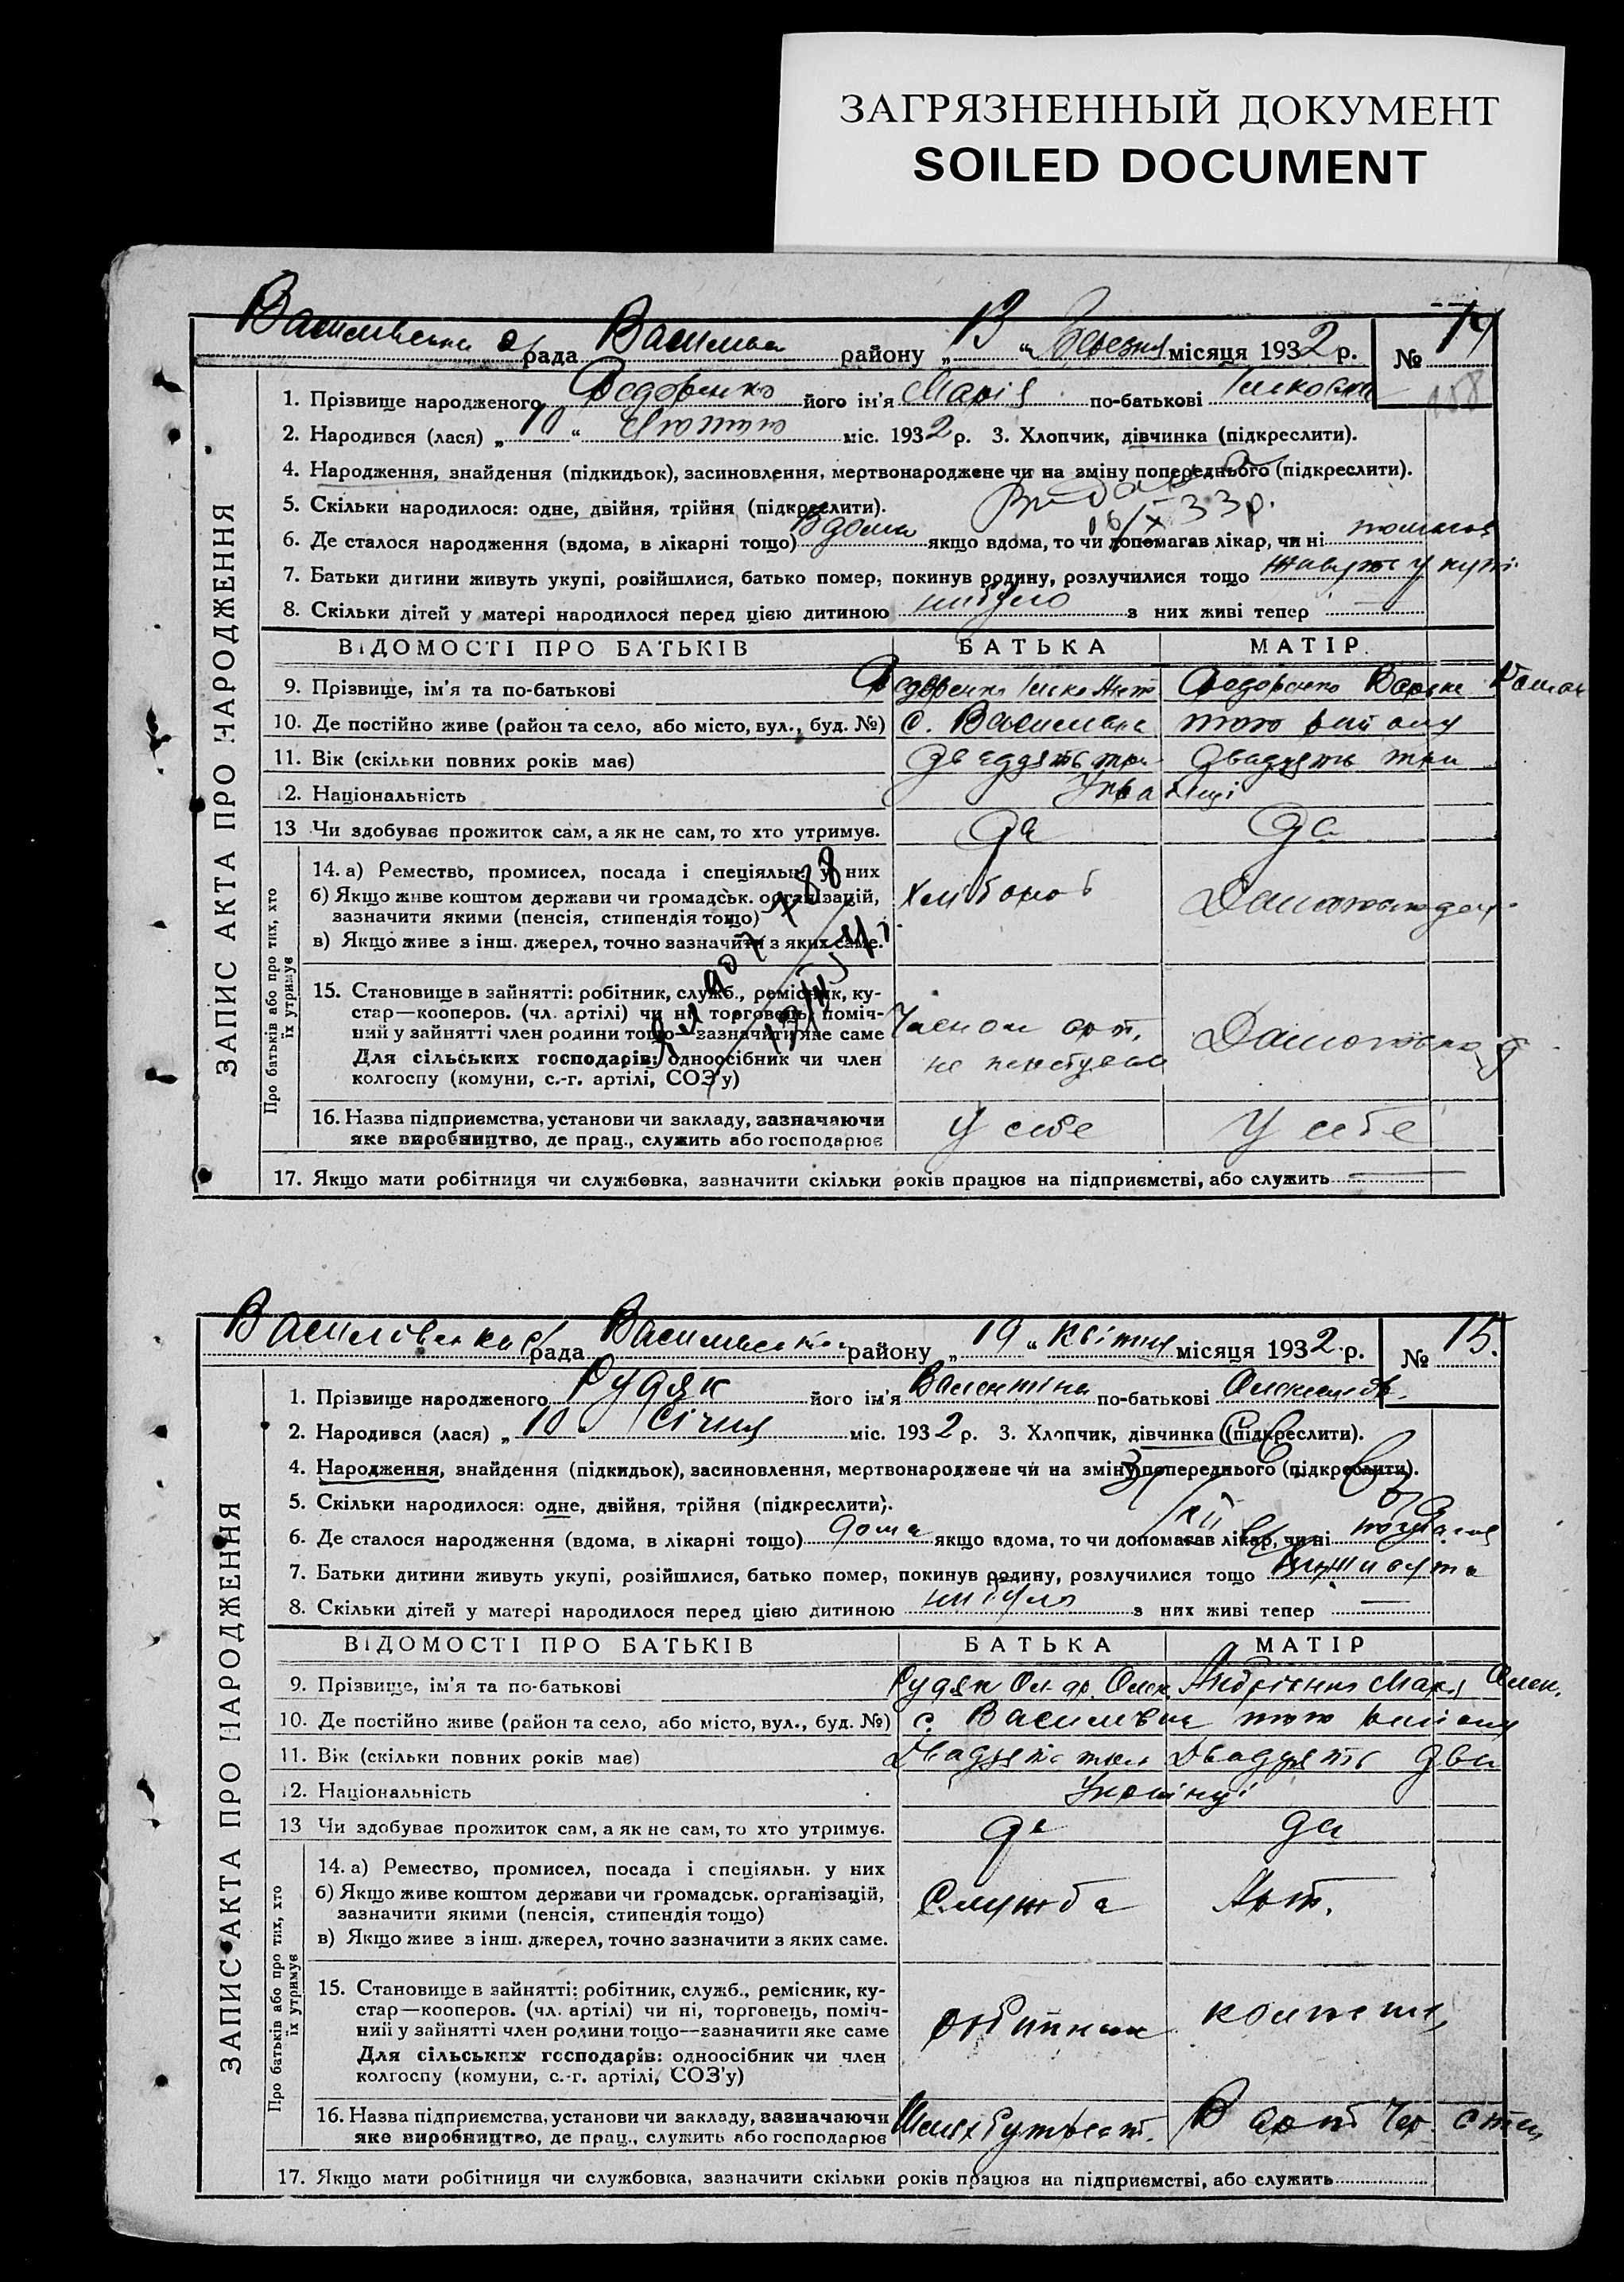 ЗАГРЯЗНЕННЫЙ ДОКУМЕНТ
SOILED DOCUMENT
рада района „ 13 “ Березня місяця 1932 р. № 14
158
1. Прізвище народженого Федоренко його ім'я Марія по-батькові
2. Народився (лася) „ 10 “ міс. 1932 р. 3. Хлопчик, дівчинка (підкреслити).
4. Народження, знайдення (підкидьок), засиновлення, мертвонароджене чи на зміну попереднього (підкреслити).
5. Скільки народилося: одне, двійня, трійня (підкреслити).
6. Де сталося народження (вдома, в лікарні тощо) Вдома якщо вдома, то чи допомагав лікар, чи ні
7. Батьки дитини живуть укупі, розійшлися, батько помер, покинув родину, розлучилися тощо живуть укупі
8. Скільки дітей у матері народилося перед цією дитиною небуло з них живі тепер —
ЗАПИС АКТА ПРО НАРОДЖЕННЯ
ВІДОМОСТІ ПРО БАТЬКІВ БАТЬКА МАТІР
9. Прізвище, ім'я та по-батькові Федоренко Федоренко
10. Де постійно живе (район та село, або місто, вул., буд. №) с. того району
11. Вік (скільки повних років має) двадцять три двадцять три
12. Національність Українці
13 Чи здобуває прожиток сам, а як не сам, то хто утримує. да да
Про батьків або про тих, хто їх утримує
14. а) Ремество, промисел, посада і спеціяльн. у них Хлібороб
б) Якщо живе коштом держави чи громадськ. організацій,
зазначити якими (пенсія, стипендія тощо)
в) Якщо живе з інш. джерел, точно зазначити з яких саме.
15. Становище в зайнятті: робітник, служб., ремісник, ку-
стар—кооперов. (чл. артілі) чи ні, торговець, поміч-
ний у зайнятті член родини тощо—зазначити яке саме
Для сільських господарів: одноосібник чи член
колгоспу (комуни, с.-г. артілі, СОЗ'у)
16. Назва підприємства, установи чи закладу, зазначаючи У себе У себе
яке виробництво, де прац., служить або господарює
17. Якщо мати робітниця чи службовка, зазначити скільки років працює на підприємстві, або служить —
рада району „ 19 “ Квітня місяця 1932 р. № 15.
1. Прізвище народженого Рудяк його ім'я Валентіна по-батькові
2. Народився (лася) „ 10 “ Січня міс. 1932 р. 3. Хлопчик, дівчинка (підкреслити).
4. Народження, знайдення (підкидьок), засиновлення, мертвонароджене чи на зміну попереднього (підкреслити).
5. Скільки народилося: одне, двійня, трійня (підкреслити).
6. Де сталося народження (вдома, в лікарні тощо) дома якщо вдома, то чи допомагав лікар, чи ні
7. Батьки дитини живуть укупі, розійшлися, батько помер, покинув родину, розлучилися тощо
8. Скільки дітей у матері народилося перед цією дитиною небуло з них живі тепер —
ЗАПИС АКТА ПРО НАРОДЖЕННЯ
ВІДОМОСТІ ПРО БАТЬКІВ БАТЬКА МАТІР
9. Прізвище, ім'я та по-батькові Рудяк Ол-др. Олек.
10. Де постійно живе (район та село, або місто, вул., буд. №) с. того району
11. Вік (скільки повних років має) Двадцять три Двадцять два
12. Національність
13 Чи здобуває прожиток сам, а як не сам, то хто утримує. да да
Про батьків або про тих, хто їх утримує
14. а) Ремество, промисел, посада і спеціяльн. у них Служба Арт.
б) Якщо живе коштом держави чи громадськ. організацій,
зазначити якими (пенсія, стипендія тощо)
в) Якщо живе з інш. джерел, точно зазначити з яких саме.
15. Становище в зайнятті: робітник, служб., ремісник, ку-
стар—кооперов. (чл. артілі) чи ні, торговець, поміч-
ний у зайнятті член родини тощо—зазначити яке саме
Для сільських господарів: одноосібник чи член
колгоспу (комуни, с.-г. артілі, СОЗ'у)
16. Назва підприємства, установи чи закладу, зазначаючи
яке виробництво, де прац., служить або господарює
17. Якщо мати робітниця чи службовка, зазначити скільки років працює на підприємстві, або служить